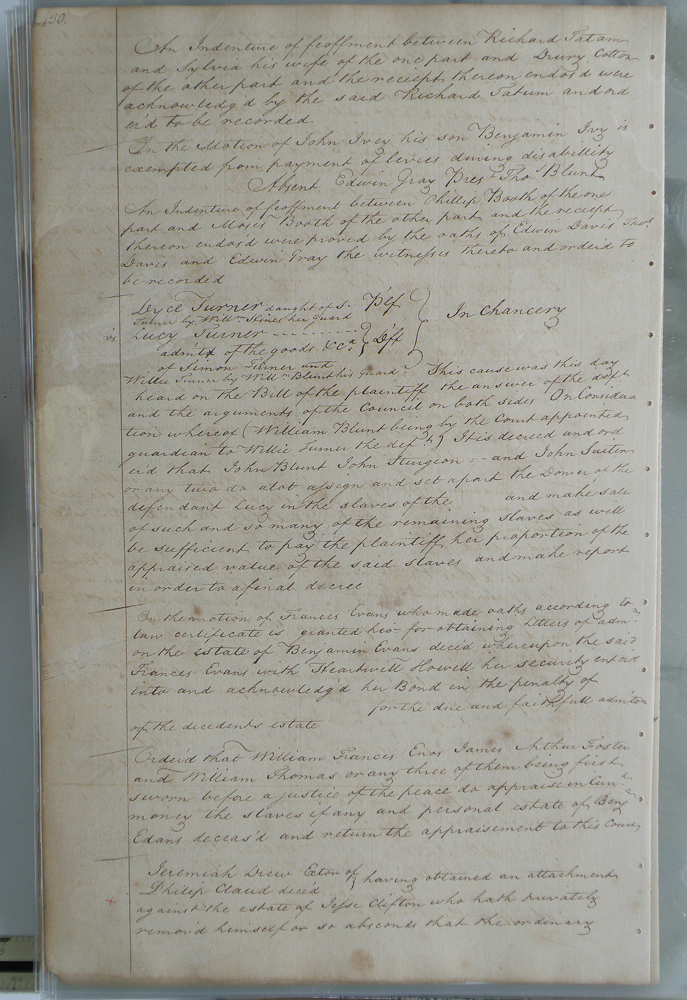 30.
An Indenture of feoffment between Richard Tatam
and Sylvia his wife of the one part and Drury Cotton
of the other part and the receipt thereon endos'd were
acknowledg'd by the said Richard Tatum and ord
er'd to be recorded.
On the Motion of John Ivey his son Benjamin Ivy is
exempted from payment of levies during disabillity
Absent, Edwin Gray Prest. Thos. Blunt
An Indenture of feoffment between Phillip Booth of the one
part and Moses Booth of the other part and the receipt
thereon endos'd were proved by the oaths of Edwin Davis Thos.
Davis and Edwin Gray the witnesses thereto and order'd to
be recorded
Dyce Turner daught of S-
Turner by Willm Hines her Guard
Pl'ef
In Chancery
vs
Lucy Turner
admtx of the goods &Ca
Dft
of Simon Turner and
Willie Turner by Willm Blunt his Guardn
This cause was this day
heard on the Bill of the plaintiff the answer of the deft
and the arguments of the Council on both sides On Considera
tion whereof (William Blunt being by the Court appointed
guardian to Willie Turner the deft) It is decreed and ord
er'd that John Blunt John Sturgeon and John Suiter
or any two do alot assign and set apart the Dower of the
defendant Lucy in the slaves of the and make sale
of such and so many of the remaining slaves as will
be sufficient to pay the plaintiff her proportion of the
appraised value of the said slaves and make report
in order to a final decree
On the motion of Frances Evans who made oaths according to
law certificate is granted her for obtaining Letters of adm.
on the Estate of Benjamin Evans decd whereupon the said
Frances Evans with Heartwell Howell her security enter'd
into and acknowledg'd her Bond in the penalty of
for the due and faithfull admiton
of the decedents estate
Order'd that William Francis Enos James Arthur Foster
and William Thomas or any three of them being first
sworn before a justice of the peace do appraise in Curr
money the slaves if any and personal estate of Benj
Evans deceas'd and return the appraisement to this Court
Jeremiah Drew Extor of
Philip Claud deced
having obtained an attachment
against the estate of Jesse Clifton who hath privately
remov'd himself or so absconds that the ordinary